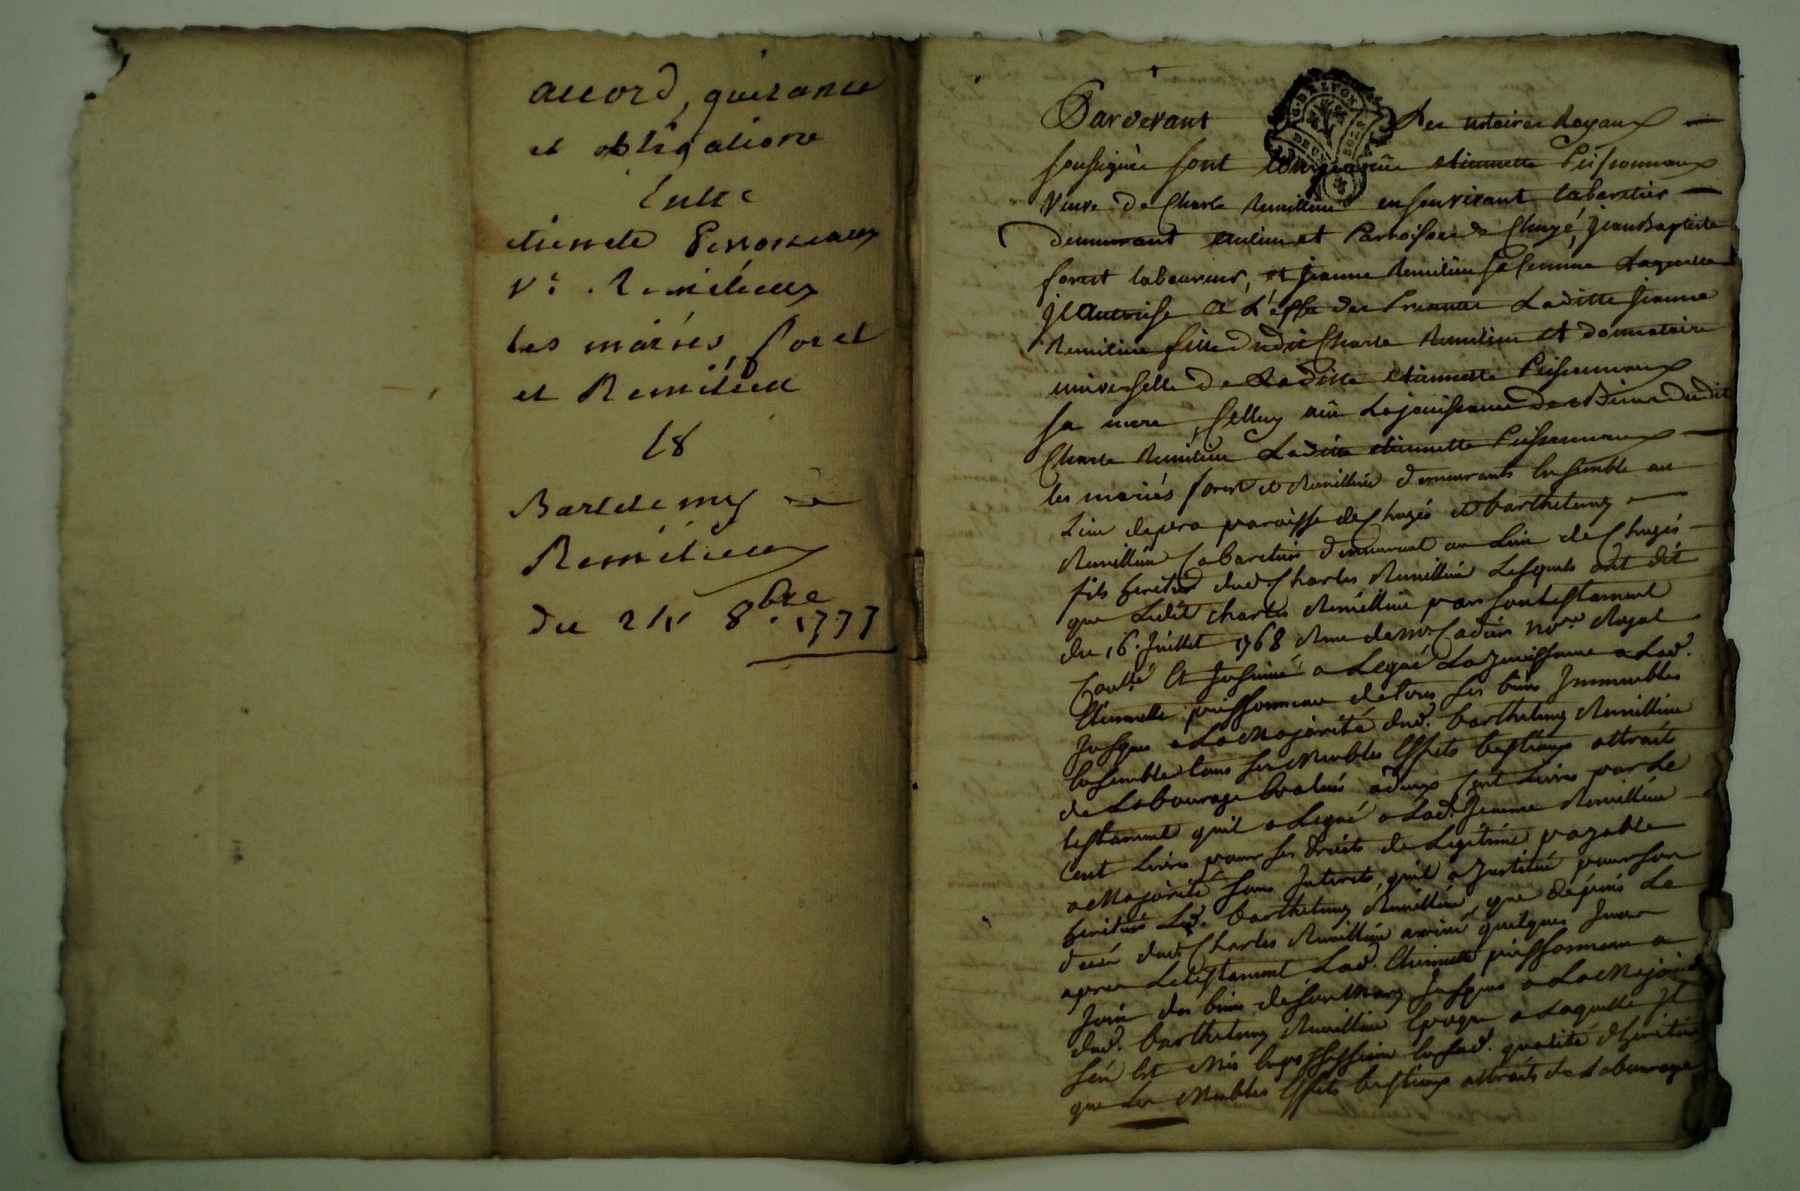 accord, quitance
et obligations
Entre
etiennete Peissoneaux
Ve. Remilieux
les mariés foret
et Remilieux
Et
Bartelemy
Remilieux
du 21 8.bre 1777
G. DE LYON
DEUX SOLS
Pardevant Les notaires Royaux
soussignés sont comparüe etiennette Peissonneaux
Veuve de Charle Remillieu en son vivant cabaretier
demeurant au lieu et Parroisse de Chuyé, Jean Baptiste
forest laboureur, et Jeanne Remilieu sa femme Laquelle
Il autorise a L'effet des Presentes Laditte Jeanne
Remilieu fille dudit Charle Remilieu et donnataire
universelle de Laditte etiennette Peissonneaux
sa mere, Celle cy aiü La jouissance des Biens dudit
Charle Remilieu Laditte etiennette Peissonneaux
les mariés forest et Remillieu demeurants Ensemble au
Lieu de pera paroisse de Chuyés et barthelemy
Remillieu Cabaretier demeurant au Lieu de Chuyés
fils heritier dud. Charles Remillieu Lesquels ont dit
que Ledit Charles Remillieu par son testament
du 16. Juillet 1768 Reçu de Mr. Cadier nore. Royal
et Insinué a Legué La Jouissance a Lad.
Etiennette peissonneau de tous ses biens Immeubles
Jusques a La Majorité dud. barthelemy Remillieu
Ensemble tous ses Meubles Effets bestiaux attraits
de Labourage Evalués a deux Cent Livres par Le
testament quil a Legué a Lad. Jeanne Remillieu
Cent Livres pour ses droits de Legitime payable
a Majorité sans Interets, quil a Institué pour son
heritier Led. barthelemy Remillieu, que depuis Le
decés dud. Charles Remillieu arrivé quelques Jours
apres Le testament Lad. Etiennette peissonneau a
Joüi des biens de son Mary Jusques a La Majorité
dud. barthelemy Remillieu Epoque a Laquelle Il
s'en Est Mis En possession En sad. qualité d'heritier
que Les Meubles Effets bestiaux attraits de Labourage